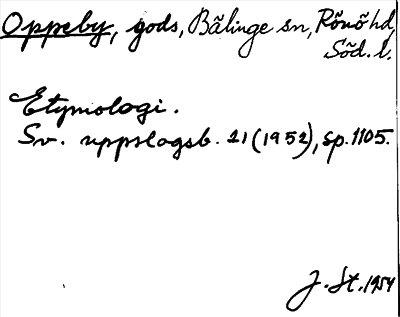 Oppeby, gods, Bälinge sn, Rönö hd,
Söd. l.
Etymologi.
Sv. uppslagsb. 21 (1952), sp. 1105.
J. St. 1954